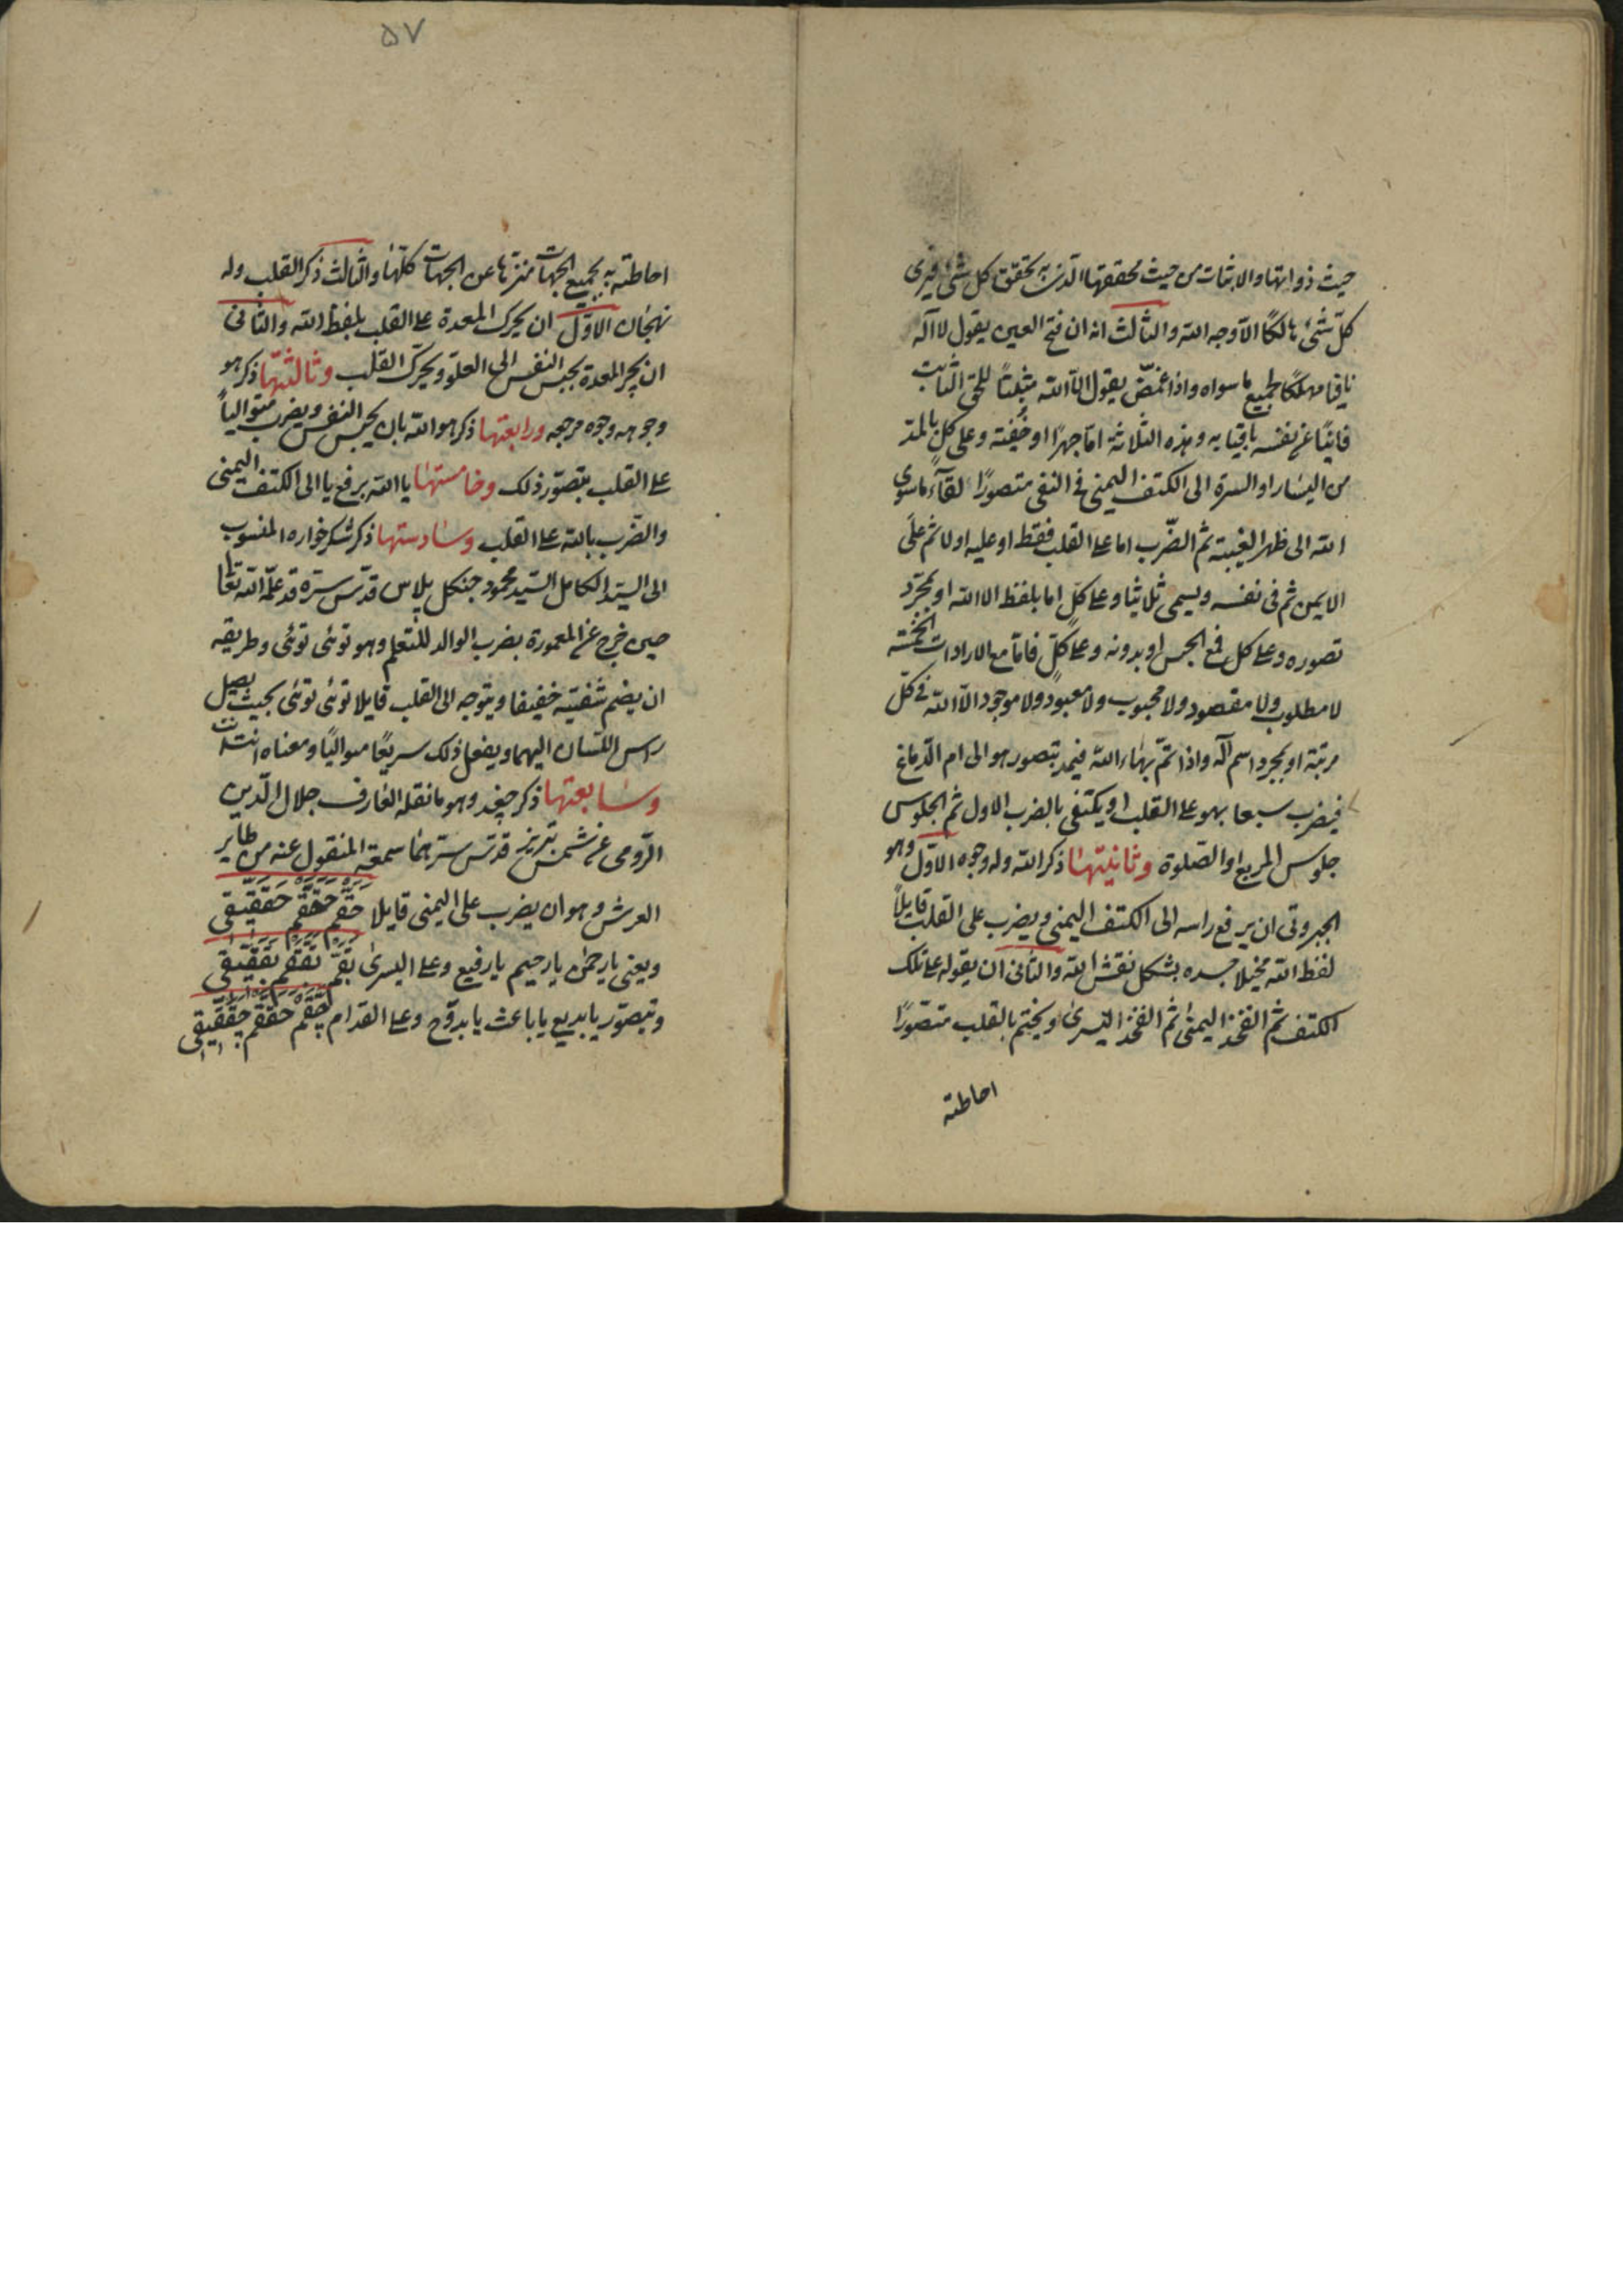 حيث ذواتها والاثبات من حيث محققها الذى به تحقق كل شئ فيرى
كل شئ هالكا الا وجه الله والثالث انه ان فتح العين يقول لا اله
نافيا مهلكا لجميع ما سواه واذا غمض يقول الا الله مثبتا للحق الثابت
فانيا عن نفسه باقيا به وهذه الثلاثة اما جهرا او خفية وعلى كل بالمد
من اليسار او السرة الى الكتف اليمنى فى النفى متصورا لقاء ما سوى
الله الى ظهر الغيبة ثم الضرب اما على القلب فقط او عليه اولا ثم على
الايمن ثم فى نفسه ويسمى ثلاثيا وعلى كل اما بلفظ الا الله او بمجرد
تصوره وعلى كل فمع الحبس او بدونه وعلى كل فاما مع الارادات الخمسة
لا مطلوب ولا مقصود ولا محبوب ولا معبود ولا موجود الا الله فى كل
مرتبة او بمجرد اسم اله واذا تم بهاء الله فيمد بتصور هو الى ام الدماغ
فيضرب سبعا بهو على القلب او يكتفى بالضرب الاول ثم الجلوس
جلوس المربع او الصلوة وثانيتها ذكر الله وله وجوه الاول وهو
الجبروتى ان يرفع راسه الى الكتف اليمنى ويضرب على القلب قايلا
لفظ الله مخيلا جسده بشكل نقش الله والثانى ان يقوله على تلك
الكتف ثم الفخذ اليمنى ثم الفخذ اليسرى ويختم بالقلب متصورا
احاطته
٥٧
احاطته به بجميع الجهات منزها عن الجهات كلها والثالث ذكر القلب وله
نهجان الاول ان يحرك المعدة على القلب بلفظ الله والثانى
ان يجر المعدة بحبس النفس الى العلو ويحرك القلب وثالثتها ذكر هو
وجوهه وجوه مرجعه ورابعتها ذكر هو الله بان يحبس النفس ويضرب متواليا
على القلب بتصور ذلك وخامستها يا الله برفع يا الى الكتف اليمنى
والضرب بالله على القلب وسادستها ذكر شكرخواره المنسوب
الى السيد الكامل السيد محمود جنكل پلاس قدس سره قد علمه الله تعا
حين خرج عن المعمورة بضرب الوالد للتعلم وهو توئى توئى وطريقه
ان يضم شفتيه خفيفا ويتوجه الى القلب قايلا توئى توئى بحيث يصل
راس اللسان اليهما ويفعل ذلك سريعا متواليا ومعناه انت انت
وسابعتها ذكر چغد وهو ما نقله العارف جلال الدين
الرومى عن شمس تبريز قدس سرهما سمعه المنقول عنه من طاير
العرش وهو ان يضرب على اليمنى قايلا حقم حققم حققيقى
ويعنى يا رحمن يا رحيم يا رفيع وعلى اليسرى بقم بققم بققيقى
ويتصور يا بديع يا باعث يا بدوح وعلى القدام چقم چققم چققيقى